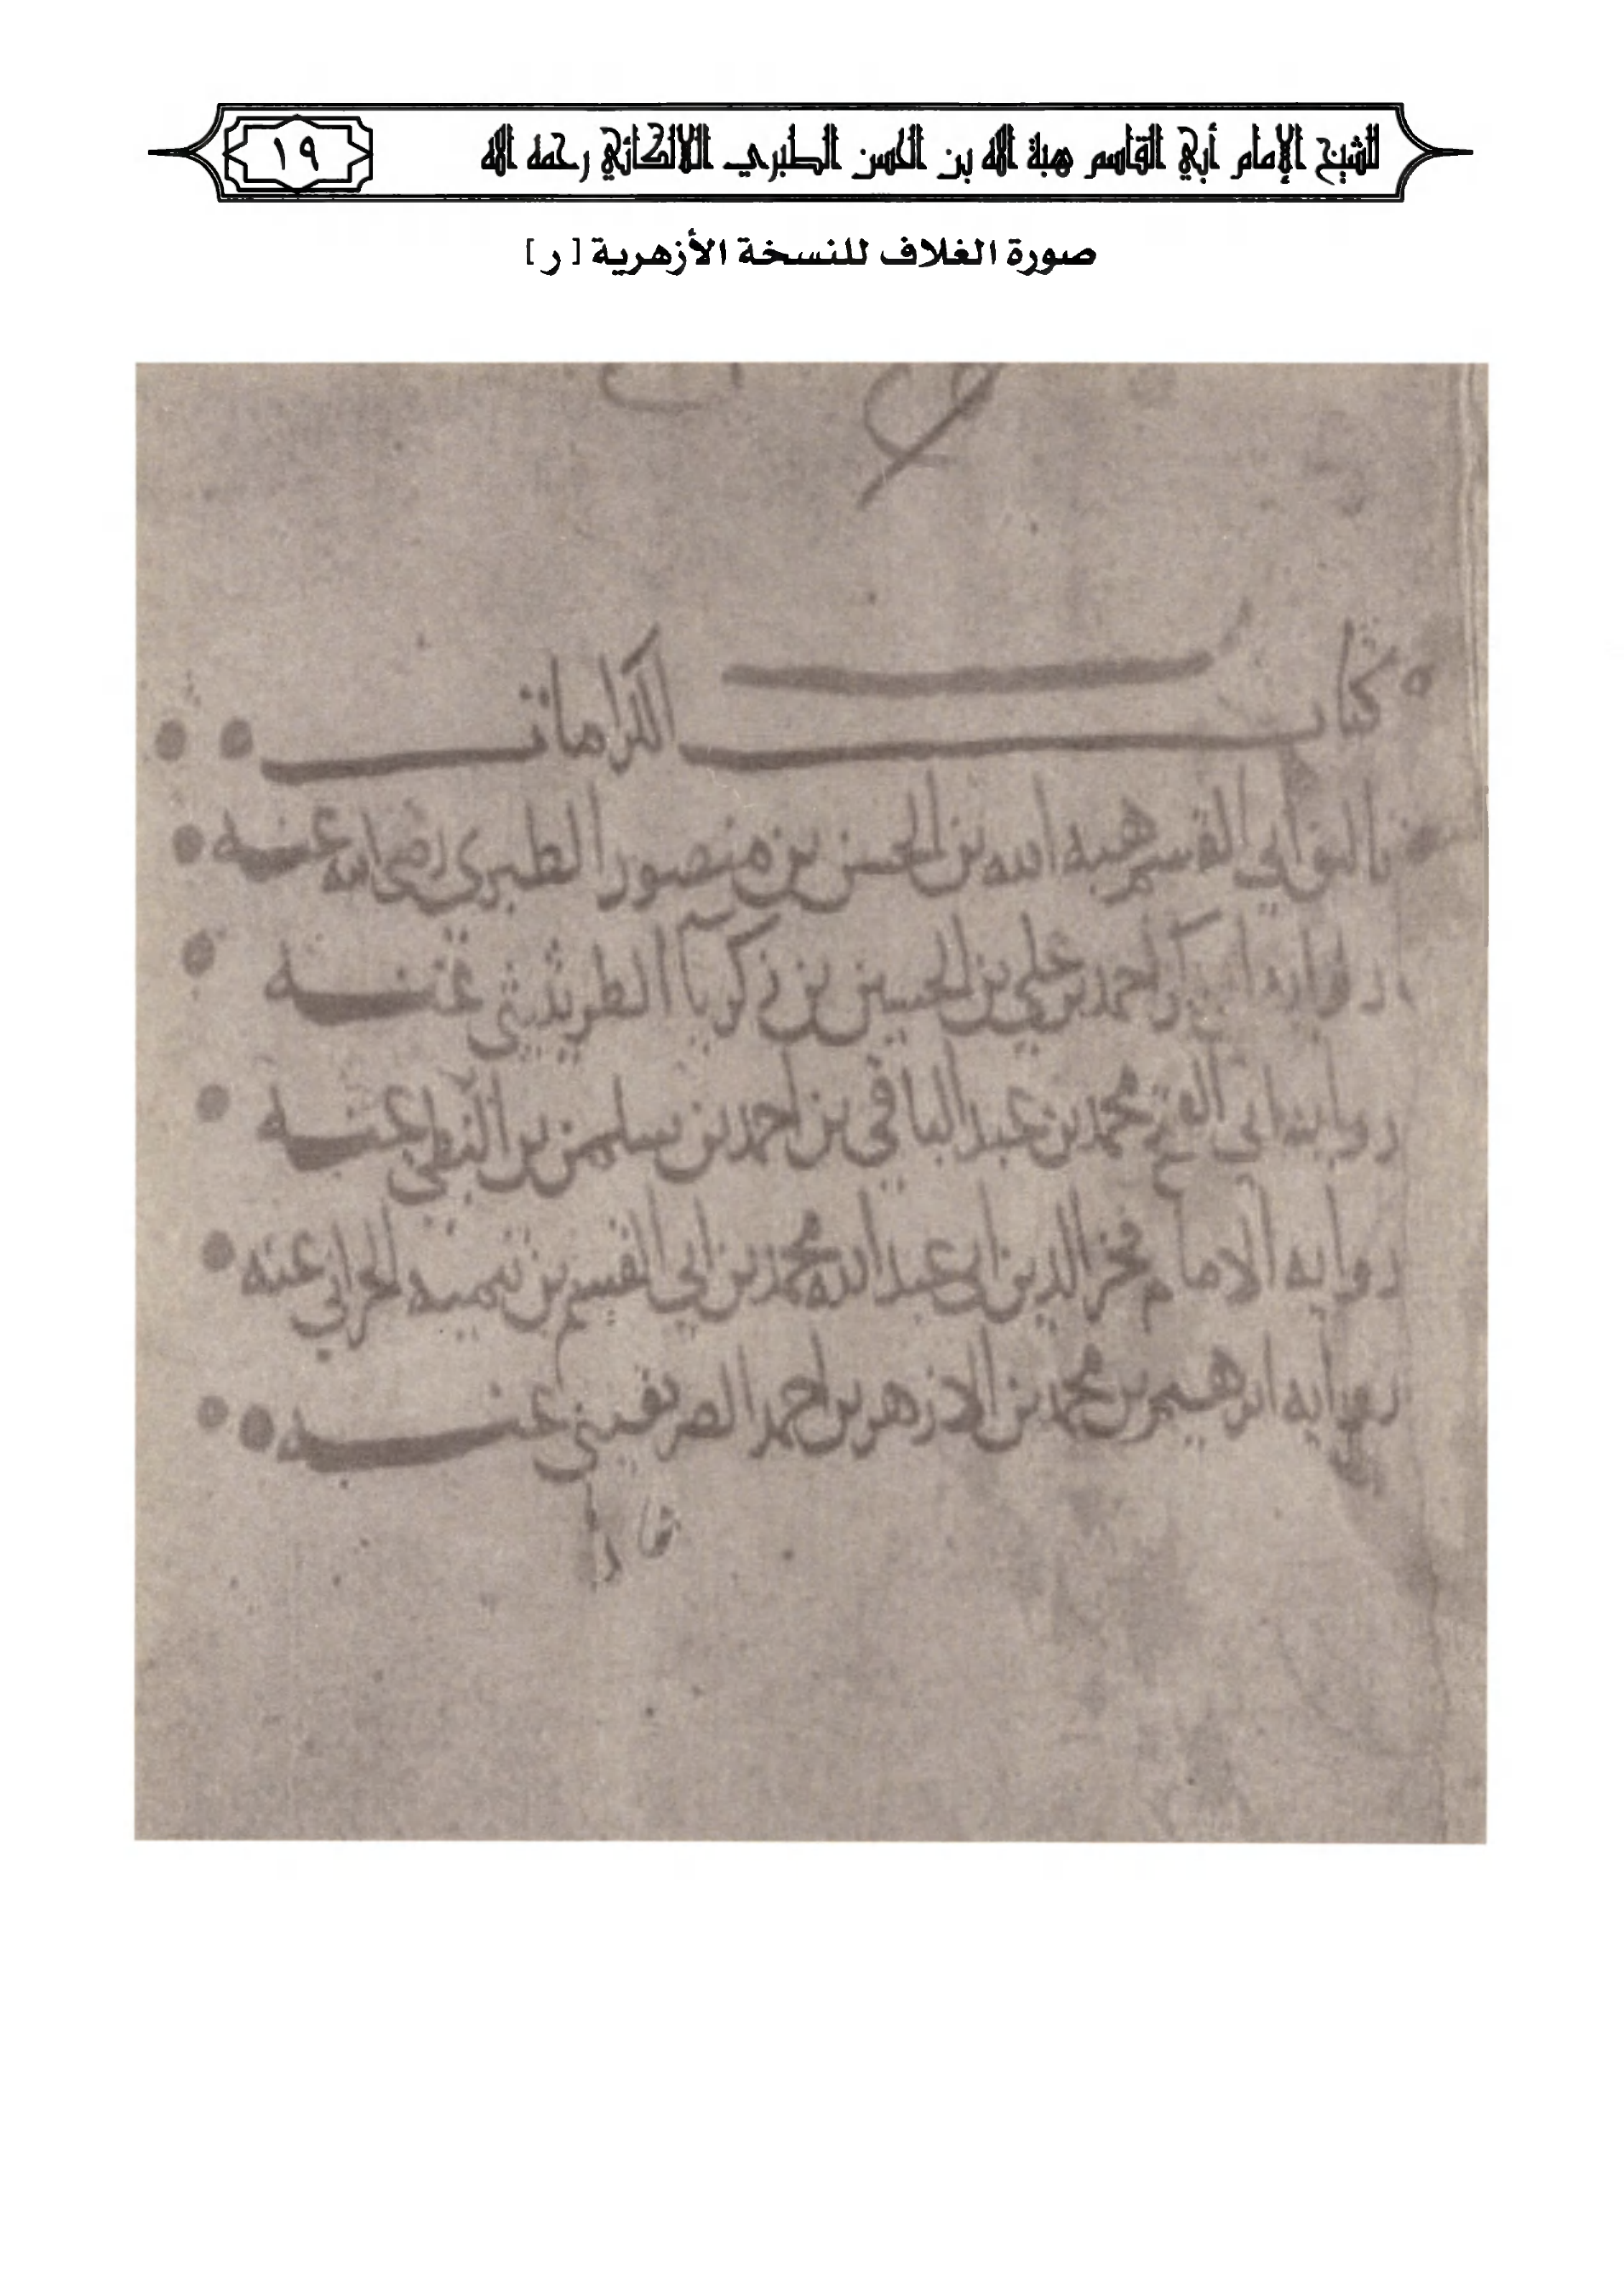 للشيخ الإمام أبي القاسم هبة الله بن الحسن الطبري اللالكائي رحمه الله
١٩
صورة الغلاف للنسخة الأزهرية [ ر ]
كتاب الكرامات
تاليف ابي القسم هبه الله بن الحسن بن منصور الطبري رضي الله عنه
روايه احمد بن علي بن الحسين بن زكريا الطريثيثي عنه
روايه ابي الفتح محمد بن عبد الباقي بن احمد بن سليمن بن البطي عنه
روايه الامام فخر الدين ابي عبد الله محمد بن ابي القسم بن تيميه الحراني عنه
روايه ابرهيم بن محمد بن الازهر بن احمد الصريفيني عنه